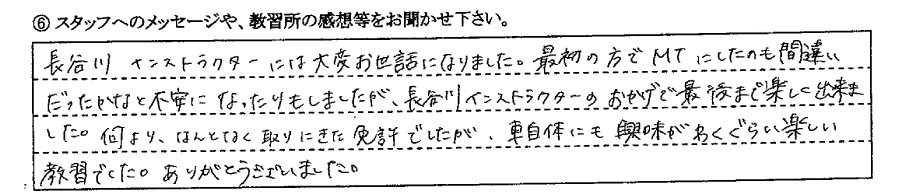 ⑥ スタッフへのメッセージや、教習所の感想等をお聞かせ下さい。
長谷川 インストラクターには大変お世話になりました。最初の方でMTにしたのも間違い
だったかなと不安に なったりもしましたが、長谷川インストラクターのおかげで最後まで楽しく出来ま
した。何より、なんとなく取りにきた免許でしたが、車自体にも興味がわくぐらい楽しい
教習でした。ありがとうございました。